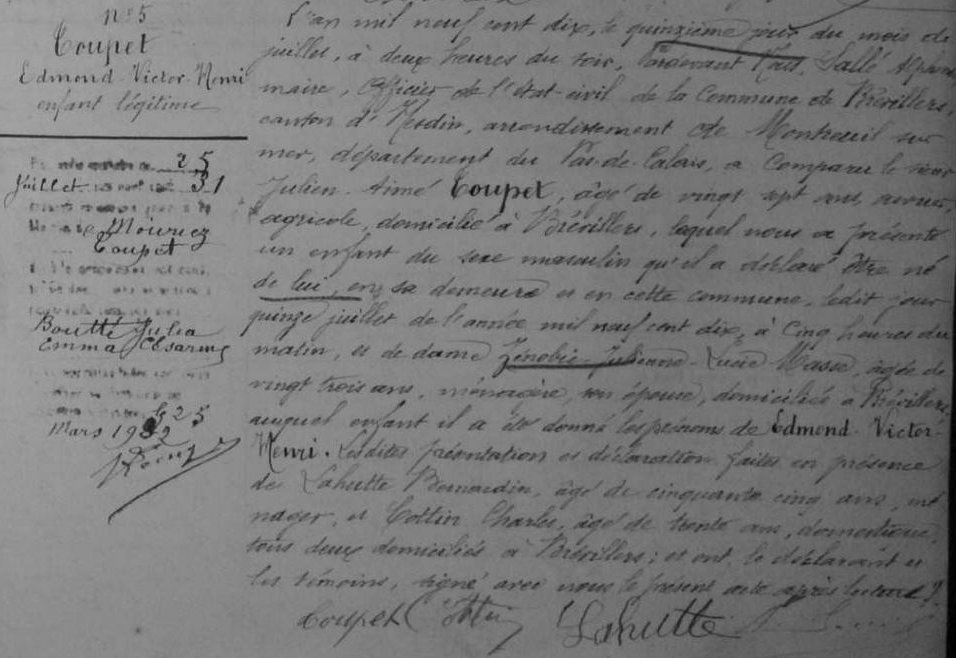 n° 5
Coupet
Edmond-Victor-Henri
enfant légitime
25
Juillet 31
Mouriez
Coupet
Boutté Julia
Emma Césarine
le 25
Mars 1932
L'an mil neuf cent dix, le quinzième jour du mois de
juillet, à deux heures du soir, Pardevant Nous Sallé Alphonse
maire, Officier de l'état-civil de la Commune de Brévillers,
canton d'Hesdin, arrondissement de Montreuil sur
mer, département du Pas-de-Calais, a Comparu le sieur
Julien-Aimé Coupet, âgé de vingt sept ans, ouvrier
agricole, domicilié à Brévillers, lequel nous a présenté
un enfant du sexe masculin qu'il a déclaré être né
de lui, en sa demeure et en cette commune, ledit jour
quinze juillet de l'année mil neuf cent dix, à cinq heures du
matin, et de dame Zénobie-Julienne-Lucie Masse, âgée de
vingt trois ans, ménagère, son épouse, domiciliée à Brévillers
auquel enfant il a été donné les prénoms de Edmond-Victor-
Henri. Lesdites présentation et déclaration faites en présence
de Lahutte Bernardin, âgé de cinquante cinq ans, mé
nager, et Cottin Charles, âgé de trente ans, domestique,
tous deux domiciliés à Brévillers; et ont le déclarant et
les témoins, signé avec nous le présent acte après lecture.
Coupet Cottin Lahutte